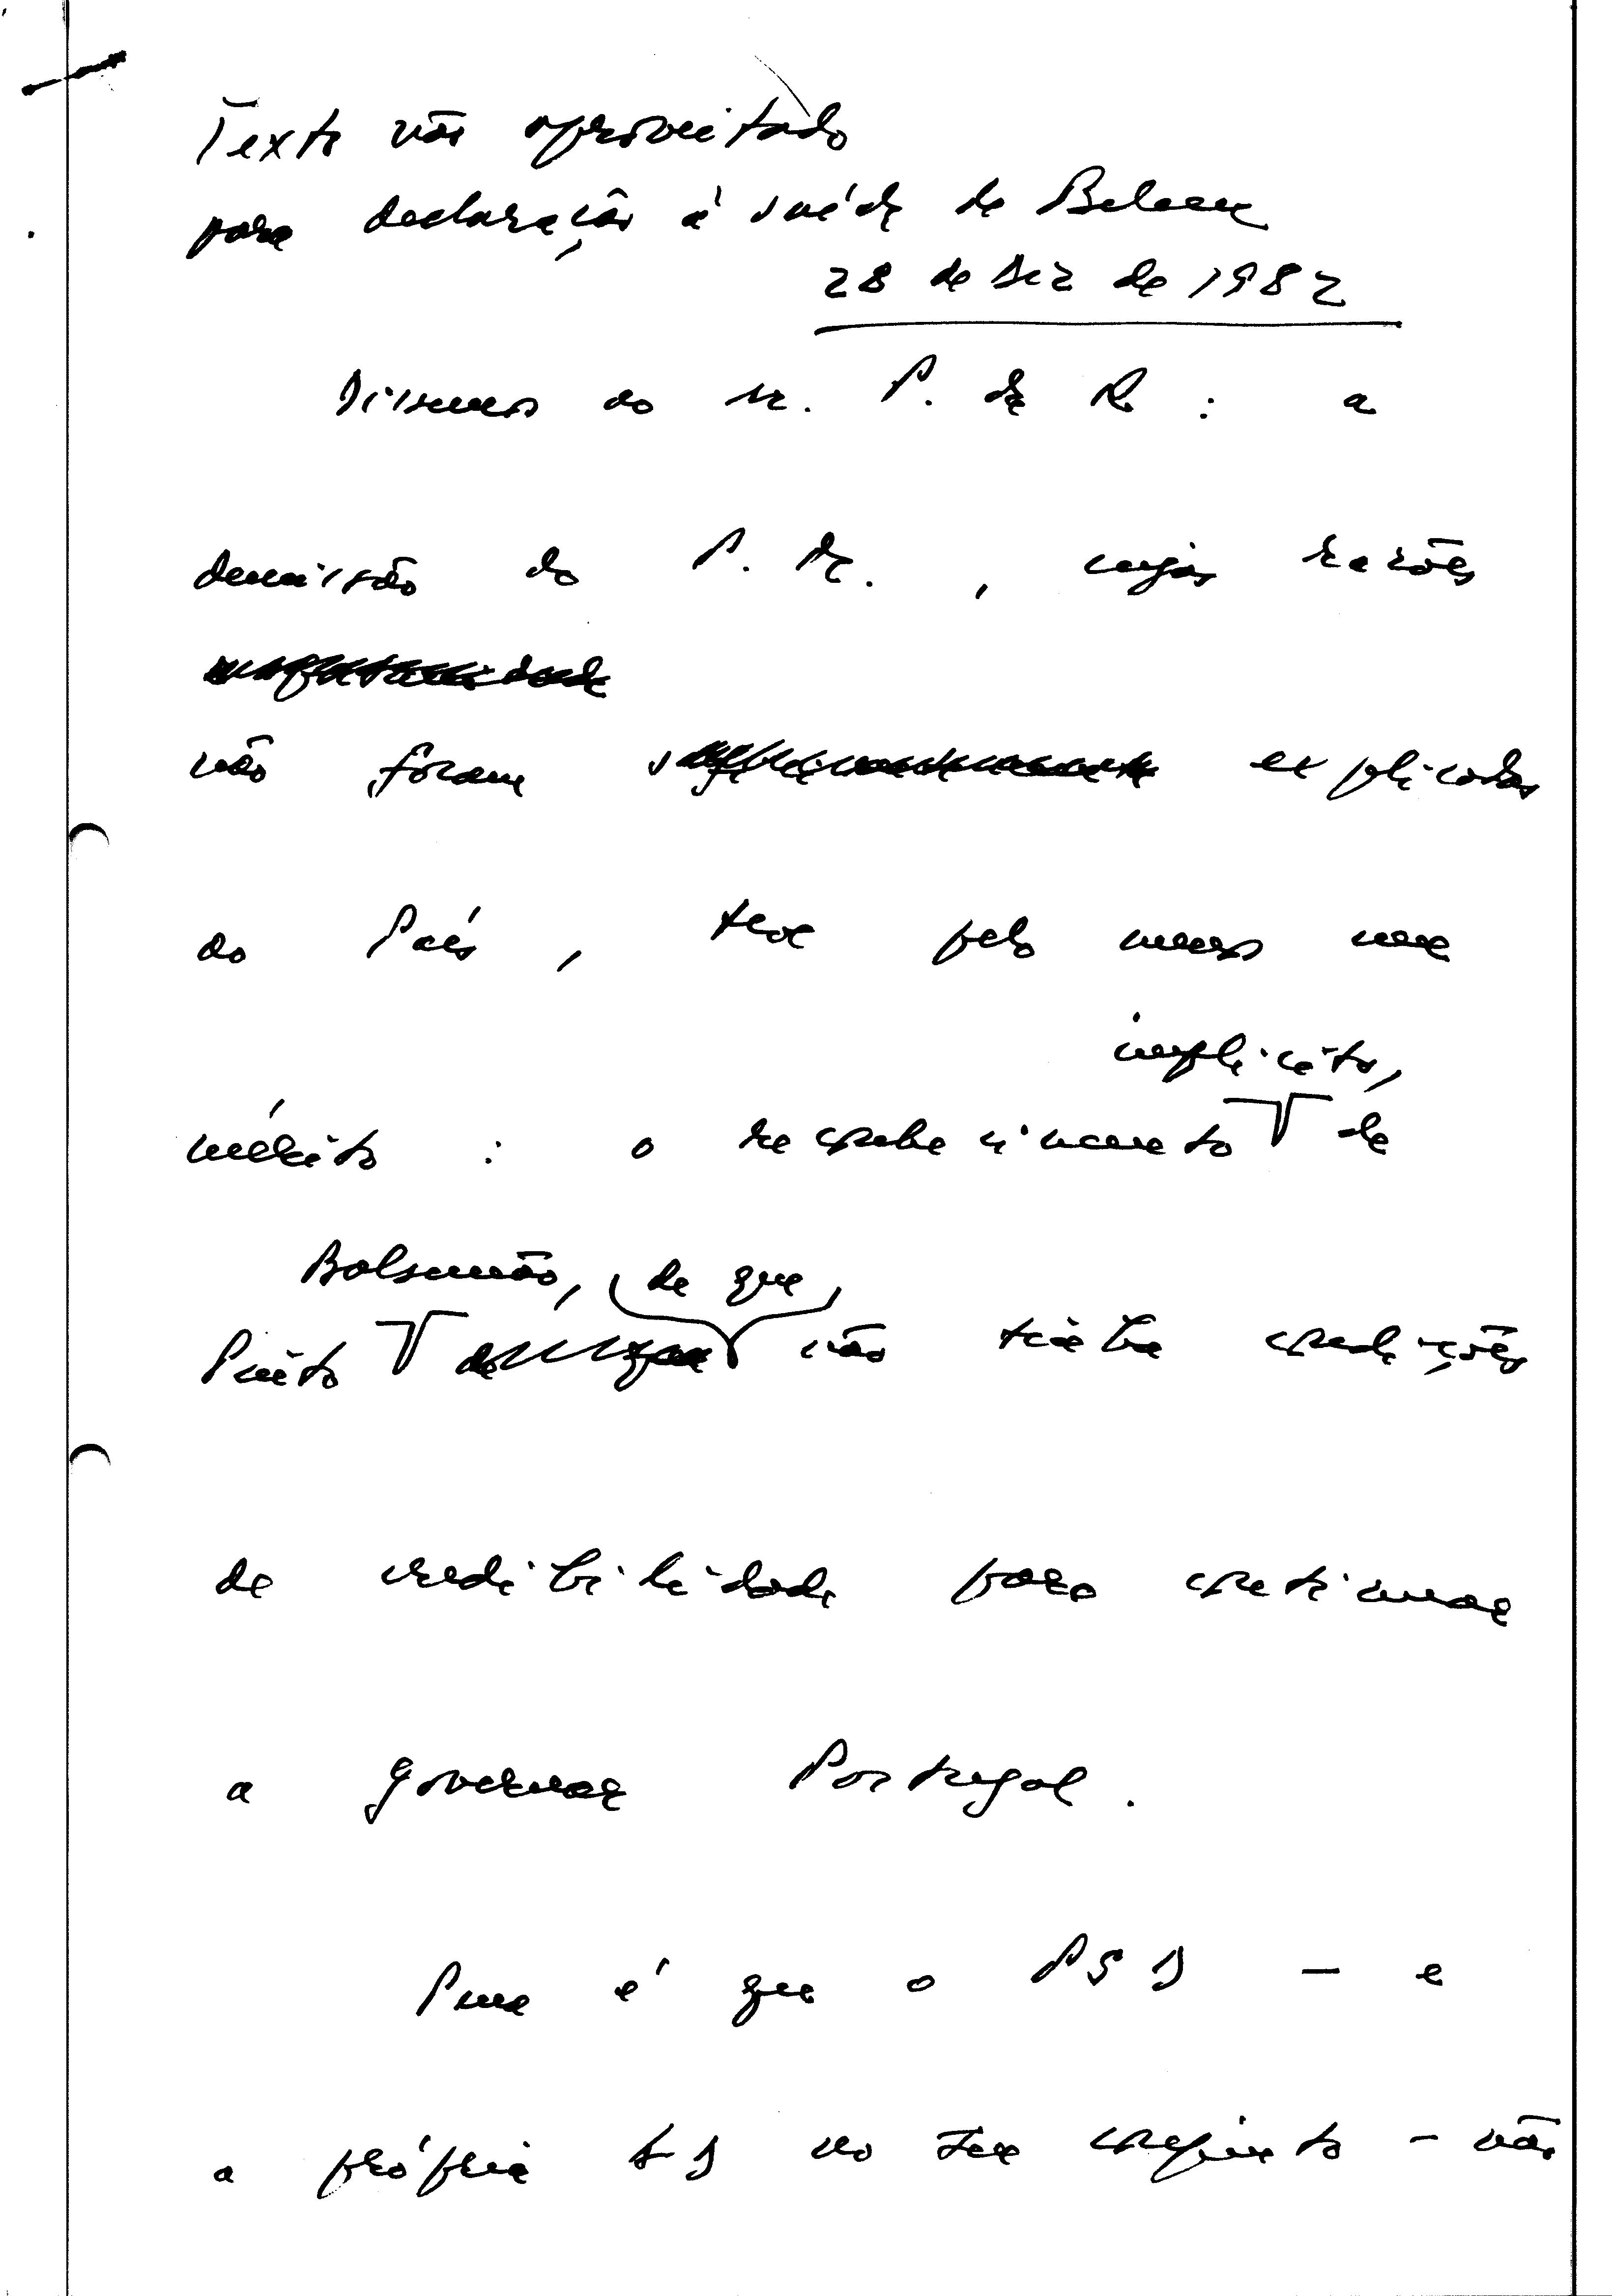 Texto não aproveitado
para declaração à saída de Belem
28 de Dez de 1982
Dissemos ao sr. P. da R. : a
demissão do P. M. , cujas razões
não foram explicadas
ao País , teve pelo menos um
implícito,
mérito : o reconhecimento de
Balsemão, de que
Pinto não tinha condições
de credibilidade para continuar
a governar Portugal .
Pena é que o PSD - e
a própria AD no seu conjunto - não